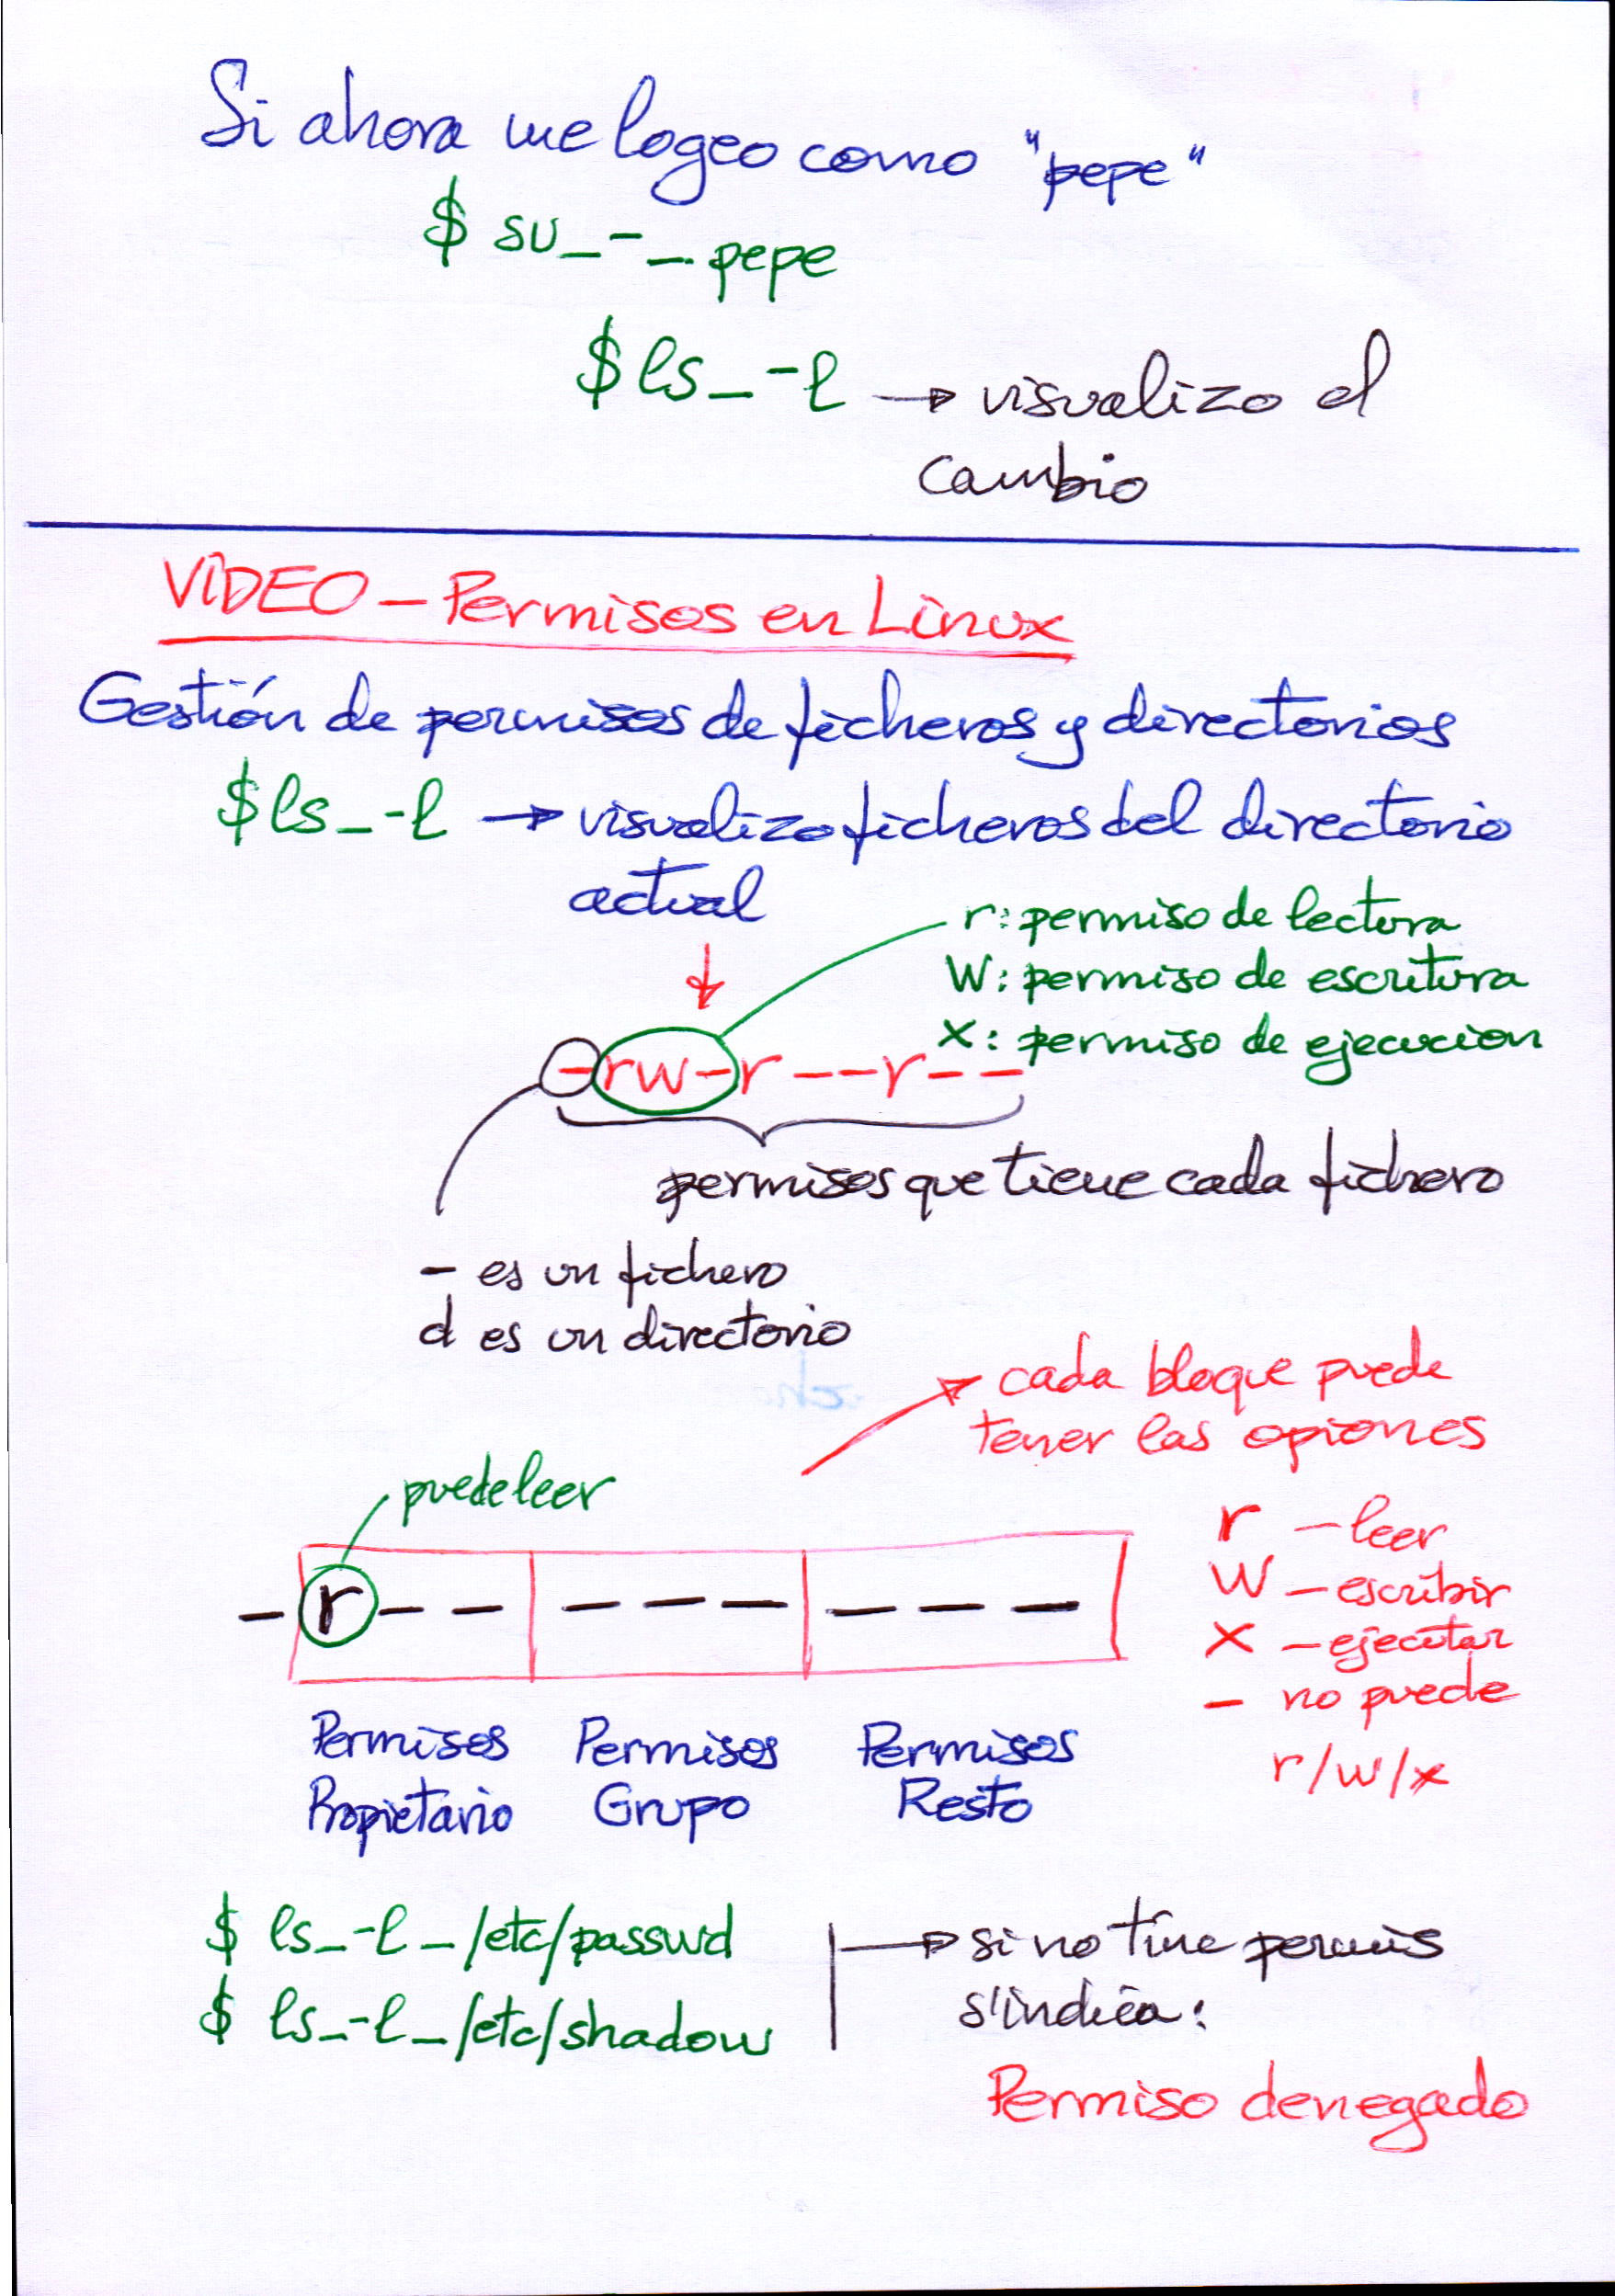 Si ahora me logeo como "pepe"
$ su_-_pepe
$ ls_-l → visualizo el
cambio
VIDEO - Permisos en Linux
Gestión de permisos de ficheros y directorios
$ ls_-l → visualizo ficheros del directorio
actual
r: permiso de lectura
W: permiso de escritura
X: permiso de ejecucion
-rw-r--r--
permisos que tiene cada fichero
- es un fichero
d es un directorio
cada bloque puede
tener las opiones
puede leer
- r - - - - - - - -
r - leer
W - escribir
X - ejecutar
- no puede
r/w/x
Permisos Propietario
Permisos Grupo
Permisos Resto
$ ls_-l_/etc/passwd
$ ls_-l_/etc/shadow
→ si no tine permis
s'indica:
Permiso denegado